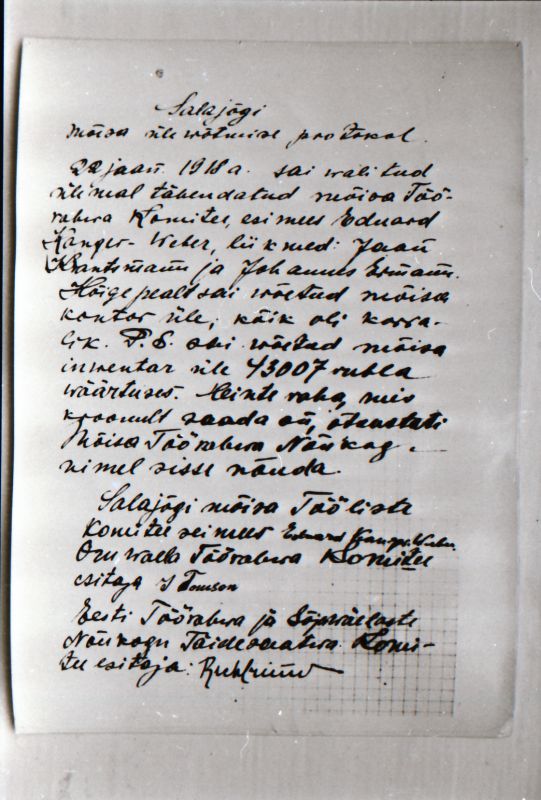 Salajõgi
mõisa üle wõtmise protokol.
22 jaan. 1918 a. sai walitud
ülemal tähendatud mõisa Töö-
rahwa Komitee, esimees Eduard
Känger-Weber, liikmed: Jaan
Krantsmann ja Johannes Ermann.
Kõige pealt sai wõetud mõisa
kontor üle, kõik oli korra-
lik. P.S. sai wõetud mõisa
inwentar üle 43007 rubla
wäärtuses. Heinte raha, mis
kroonult saada on, otsustati
Mõisa Töörahwa Nõukog.
nimel sisse nõuda.
Salajõgi mõisa Tööliste
Komitee seimees Eduard Kanger-Weber.
Oru walla Töörahwa Komitee
esitaja J Tomson
Eesti Töörahwa ja Sõjawäelaste
Nõukogu Täidesaatwa Komi-
tee esitaja: